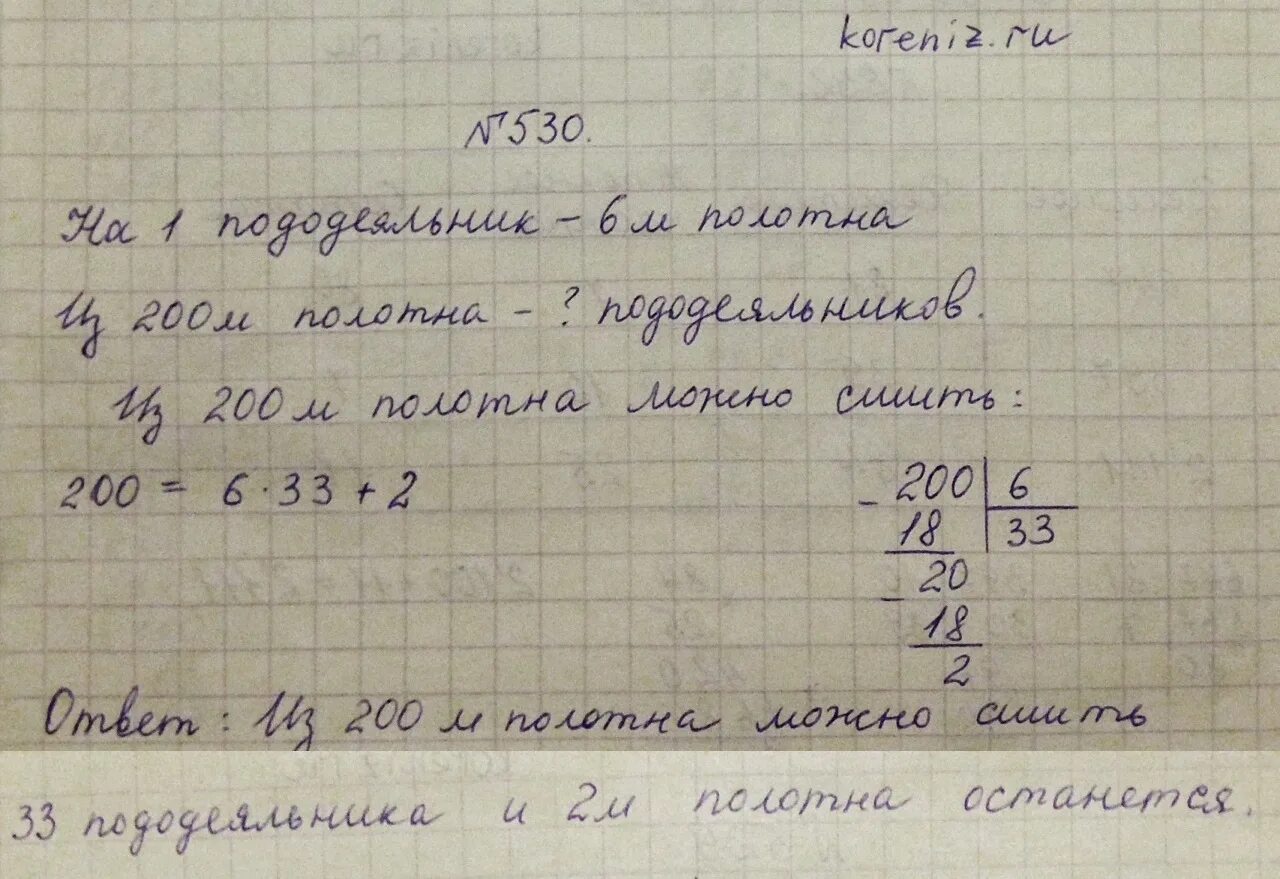 koreniz.ru
№530.
На 1 пододеяльник – 6 м полотна
Из 200 м полотна – ? пододеяльников.
Из 200 м полотна можно сшить:
200 = 6·33 + 2
- 200 | 6
18 | 33
- 20
18
2
Ответ: Из 200 м полотна можно сшить
33 пододеяльника и 2 м полотна останется.